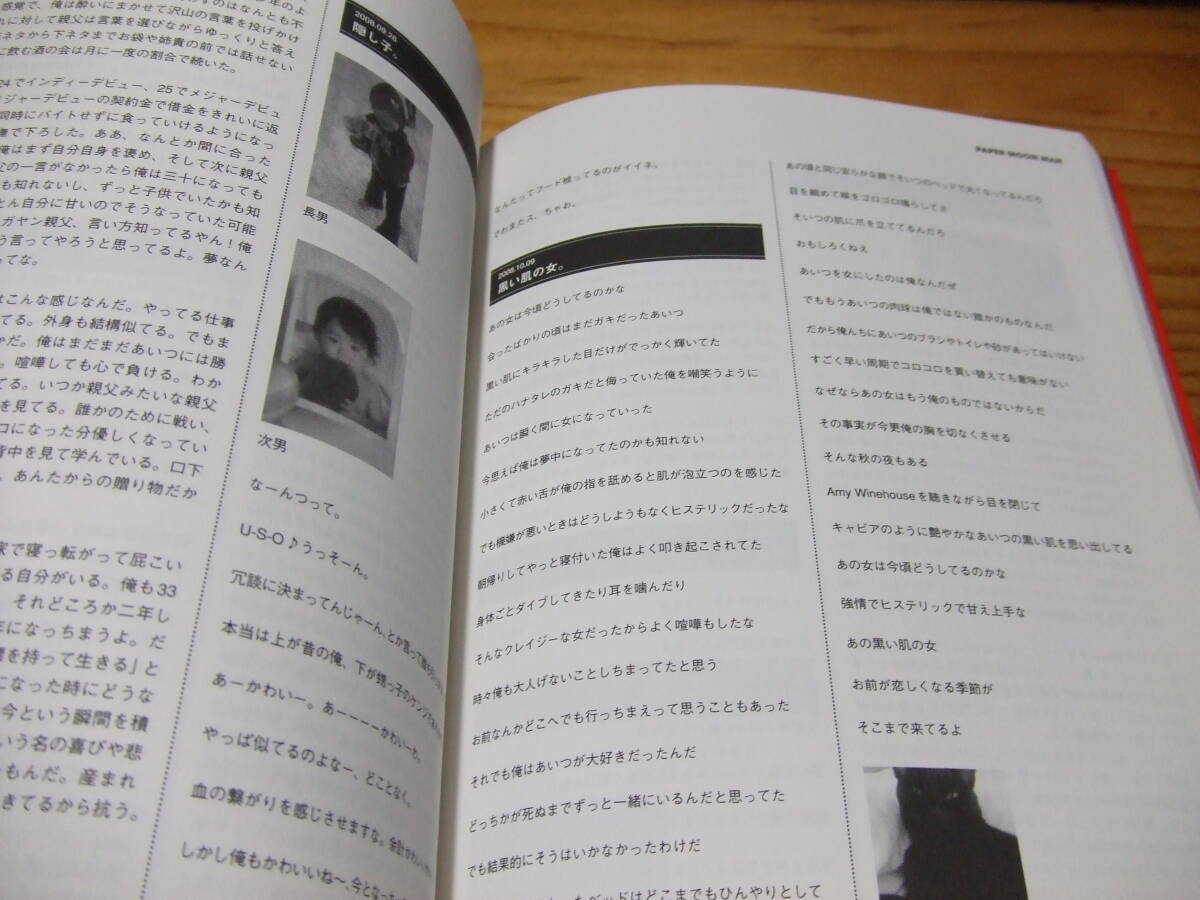 感覚で、俺は酔いにまかせて沢山の言葉を投げかけ
れに対して親父は言葉を選びながらゆっくりと答え
ネタから下ネタまでお袋や姉貴の前では話せない
に飲む酒の会は月に一度の割合で続いた。
24でインディーデビュー、25でメジャーデビュ
メジャーデビューの契約金で借金をきれいに返
同時にバイトせずに食っていけるようになっ
で下ろした。ああ、なんとか間に合った
俺はまず自分自身を褒め、そして次に親父
父の一言がなかったら俺は三十になっても
も知れないし、ずっと子供でいたかも知
とん自分に甘いのでそうなっていた可能
ガヤン親父、言い方知ってるやん！俺
う言ってやろうと思ってるよ。夢なん
ってな。
はこんな感じなんだ。やってる仕事
てる。外身も結構似てる。でもま
かだ。俺はまだまだあいつには勝
。喧嘩しても心で負ける。わか
てる。いつか親父みたいな親父
を見てる。誰かのために戦い、
コになった分優しくなってい
背中を見て学んでいる。口下
、あんたからの贈り物だか
家で寝っ転がって屁こい
る自分がいる。俺も33
それどころか二年し
年になっちまうよ。だ
を持って生きる」と
になった時にどうな
今という瞬間を積
いう名の喜びや悲
ともんだ。産まれ
きてるから抗う。
2008.09.26
隠し子。
長男
次男
なーんつって。
U-S-O♪うっそーん。
冗談に決まってんじゃーん、とか言って
本当は上が昔の俺、下が甥っ子のケンジで
あーかわいー。あーーーーかわいーわ。
やっぱ似てるのよなー、どことなく。
血の繋がりを感じさせますな。余計かわいい
しかし俺もかわいいね〜、今となっちゃ
PAPER MOON MAN
なんたってフード被ってるのがイイネ。
でわまたス、ちゃお。
2008.10.09
黒い肌の女。
あの女は今頃どうしてるのかな
会ったばかりの頃はまだガキだったあいつ
黒い肌にキラキラした目だけがでっかく輝いてた
ただのハナタレのガキだと侮っていた俺を嘲笑うように
あいつは瞬く間に女になっていった
今思えば俺は夢中になってたのかも知れない
小さくて赤い舌が俺の指を舐めると肌が泡立つのを感じた
でも機嫌が悪いときはどうしようもなくヒステリックだったな
朝帰りしてやっと寝付いた俺はよく叩き起こされてた
身体ごとダイブしてきたり耳を噛んだり
そんなクレイジーな女だったからよく喧嘩もしたな
時々俺も大人げないことしちまってたと思う
お前なんかどこへでも行っちまえって思うこともあった
それでも俺はあいつが大好きだったんだ
どっちかが死ぬまでずっと一緒にいるんだと思ってた
でも結果的にそうはいかなかったわけだ
ベッドはどこまでもひんやりとして
あの頃と同じ安らかな顔でそいつのベッドで丸くなってるんだろ
目を細めて喉をゴロゴロ鳴らしてさ
そいつの肌に爪を立ててるんだろ
おもしろくねえ
あいつを女にしたのは俺なんだぜ
でももうあいつの肉球は俺ではない誰かのものなんだ
だから俺んちにあいつのブラシやトイレや砂があってはいけない
すごく早い周期でコロコロを買い替えても意味がない
なぜならあの女はもう俺のものではないからだ
その事実が今更俺の胸を切なくさせる
そんな秋の夜もある
Amy Winehouseを聴きながら目を閉じて
キャビアのように艶やかなあいつの黒い肌を思い出してる
あの女は今頃どうしてるのかな
強情でヒステリックで甘え上手な
あの黒い肌の女
お前が恋しくなる季節が
そこまで来てるよ